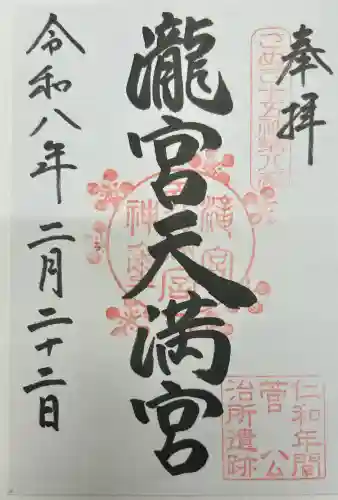 奉拝
瀧宮天満宮
令和八年二月二十二日
仁和年間
菅公
治所遺跡